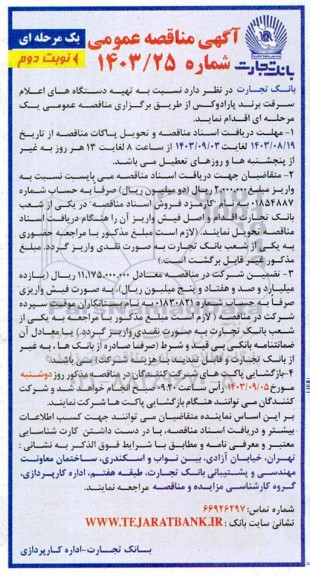 آگهی مناقصه عمومی
یک مرحله ای
شماره ۱۴۰۳/۲۵
نوبت دوم
بانک تجارت
بانک تجارت در نظر دارد نسبت به تهیه دستگاه های اعلام
سرقت برند پارادوکس از طریق برگزاری مناقصه عمومی یک
مرحله ای اقدام نماید.
۱- مهلت دریافت اسناد مناقصه و تحویل پاکات مناقصه از تاریخ
۱۴۰۳/۰۸/۱۹ لغایت ۱۴۰۳/۰۹/۰۳ از ساعت ۸ لغایت ۱۳ هر روز به غیر
از پنجشنبه ها و روزهای تعطیل می باشد.
۲- متقاضیان جهت دریافت اسناد مناقصه می بایست نسبت به
واریز مبلغ ۲.۰۰۰.۰۰۰ ریال (دو میلیون ریال) صرفا به حساب شماره
نزد فروش اسناد مناقصه در یکی از شعب
بانک تجارت اقدام و اصل فیش واریز آن را هنگام دریافت اسناد
مناقصه تحویل نمایند. (لازم است مبلغ مذکور با مراجعه حضوری
به یکی از شعب بانک تجارت به صورت نقدی واریز گردد. مبلغ
مذکور غیر قابل برگشت است)
۳- تضمین شرکت در مناقصه معادل ۱۱,۱۷۵,۰۰۰,۰۰۰ ریال (یازده
میلیارد و صد و هفتاد و پنج میلیون ریال)، به صورت فیش واریزی
صرفا به حساب شماره ۰۱۸۳۰۸۲۱ به نام بستانکاران موقت سپرده
شرکت در مناقصه (لازم است مبلغ مذکور با مراجعه به یکی از
شعب بانک تجارت به صورت نقدی واریز گردد.) یا معادل آن
ضمانتنامه بانکی بی قید و شرط (صرفا صادره از بانک ها، به غیر
از بانک تجارت) و قابل تمدید با هزینه شرکت می باشد
۴- بازگشایی پاکت های شرکت کنندگان در مناقصه مذکور روز دوشنبه
مورخ ۱۴۰۳/۰۹/۰۵ رأس ساعت ۰۹:۳۰ انجام خواهد شد شرکت
کنندگان می توانند هنگام بازگشایی پاکت ها شرکت نمایند.
بر این اساس نماینده متقاضیان می توانند جهت کسب اطلاعات
بیشتر و دریافت اسناد مناقصه، با در دست داشتن کارت شناسایی
معتبر و معرفی نامه و مطابق با شرایط فوق الذکر به نشانی :
تهران، خیابان آزادی، بین نواب و اسکندری، ساختمان معاونت
مهندسی و پشتیبانی بانک تجارت، طبقه هفتم، اداره کارپردازی،
گروه کارشناسی مزایده و مناقصه مراجعه نمایند.
شماره تماس: ۶۶۹۲۶۲۹۷
نشانی سایت بانک : WWW.TEJARATBANK.IR
بانک تجارت-اداره کارپردازی